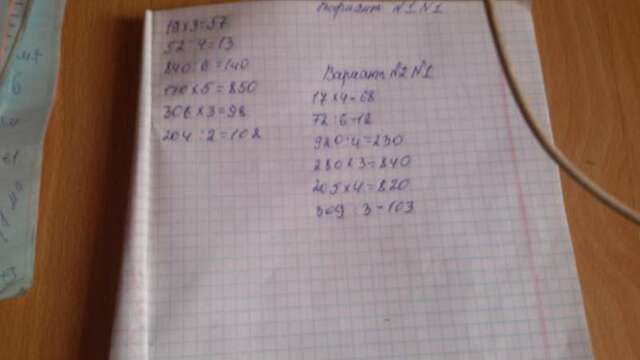 Вариант №1 №1
19 x 3 = 57
52 : 4 = 13
840 : 6 = 140
170 x 5 = 850
306 x 3 = 98
204 : 2 = 102
Вариант №2 №1
17 x 4 = 68
72 : 6 = 12
920 : 4 = 230
280 x 3 = 840
205 x 4 = 820
309 : 3 = 103